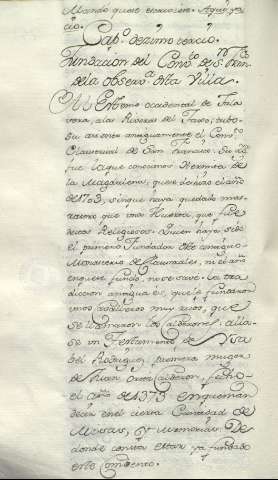 Mando quese enterrase. Aqui ya
cio.
Cap.º dezimo tercio.
Fundacion del Conv.to de S. Fran.co
dela observ.ª desta Villa.
En el Extremo occidental de Tala
vera, alas Riveras del Taxo, tubo
su asiento antiguamente el Conv.to
Claustral de San Francisco. Su
fue la que conocimos Hermita de
la Magdalena, que se derribo el año
de 1703, sinque haya quedado mas
rastro que una Huerta, que fue
destos Religiosos. Quien haya sido
el primero Fundador deste antiguo
Monasterio de Claustrales, ni el año
enque se fundo, nose save. La tra
diccion antigua es, que le fundaron
unos Cavalleros muy ricos, que
se llamaron los Calderones. alla
se un Testamento de
bel Rodriguez, primera muger
de Juan Ortiz Calderon, fecho
el año de 1373 enque man
da en el cierta Cantidad de
Misas, y memorias. De
donde consta estar ya fundado
este Combento.